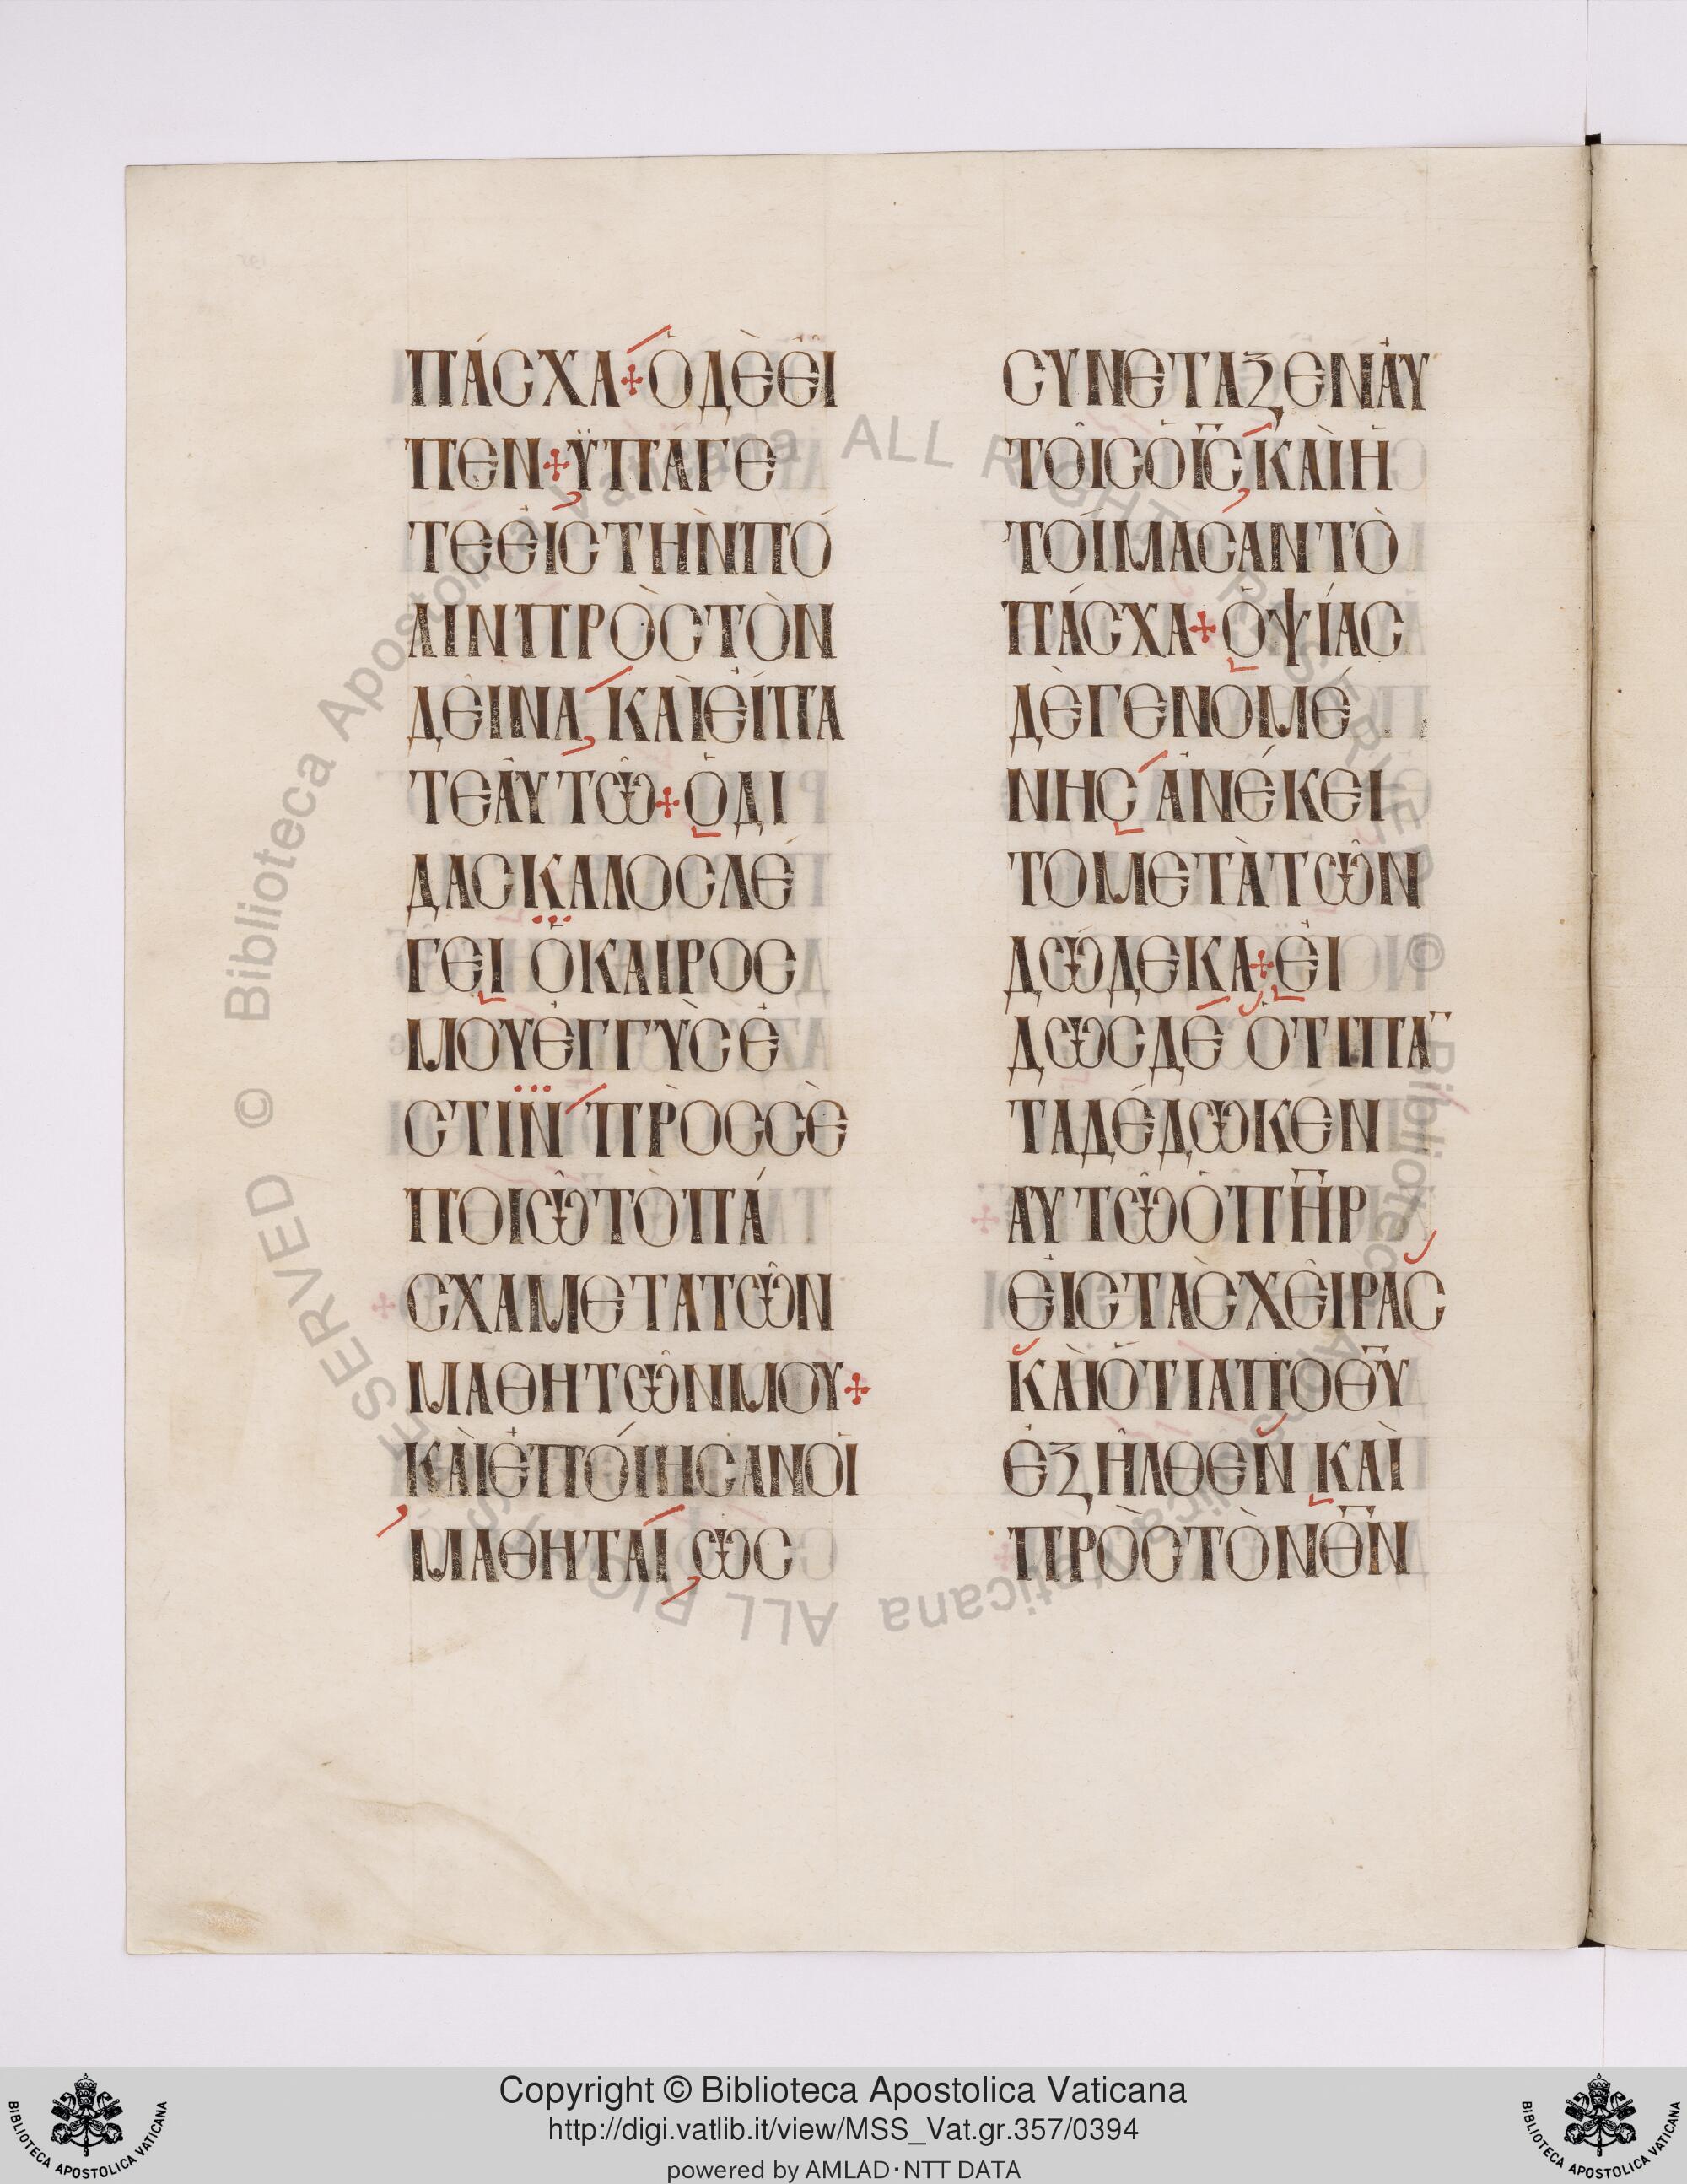 ΠΆCΧΑ ὉΔῈΕἾ
ΠΕΝ ΫΠΆΓΕ
ΤΕΕἸCΤῊΝΠΌ
ΛΙΝΠΡῸCΤῸΝ
ΔΕῖΝΑ, ΚΑῚΕἼΠΑ
ΤΕΑὐΤῶ ὉΔΙ
ΔΆCΚΑΛΟCΛΈ
ΓΕΙ ὉΚΑΙΡΟC
ΜΟΥἘΓΓΎCἘ
CΤΙΝ ΠΡΟCCῈ
ΠΟΙῶΤῸΠΆ
CΧΑΜΕΤΑΤῶΝ
ΜΑΘΗΤῶΝΜΟΥ
ΚΑῚἘΠΌΙΗCΑΝΟἹ
ΜΑΘΗΤΑΊ, ὡC
CΥΝΕΤΑΞΕΝΑὐ
ΤΟῖCὉΙ̅C̅, ΚΑῚἩ
ΤΟΊΜΑCΑΝΤῸ
ΠΆCΧΑ ὈΨΊΑC
ΔῈΓΕΝΟΜΈ
ΝΗC ἈΝΈΚΕΙ
ΤΟΜΕΤᾺΤῶΝ
ΔώΔΕΚΑ ΕἸ
ΔὼCΔΕ ὍΤΙΠΑ̈
ΤΑΔΈΔωΚΕΝ
ΑΥΤῶὉΠΗ̅Ρ
ΕἸCΤΑCΧΕῖΡΑC
ΚΑῚὍΤΙΑΠΟΘ̅Υ̅
ἘΞῆΛΘΕΝ ΚΑῚ
ΠΡῸCΤῸΝΘ̅Ν̅
© Biblioteca Apostolica Vaticana ALL RIGHTS RESERVED © Biblioteca Apostolica Vaticana ALL RIGHTS RESERVED
Copyright © Biblioteca Apostolica Vaticana
http://digi.vatlib.it/view/MSS_Vat.gr.357/0394
powered by AMLAD·NTT DATA
BIBLIOTECA APOSTOLICA VATICANA
BIBLIOTECA APOSTOLICA VATICANA